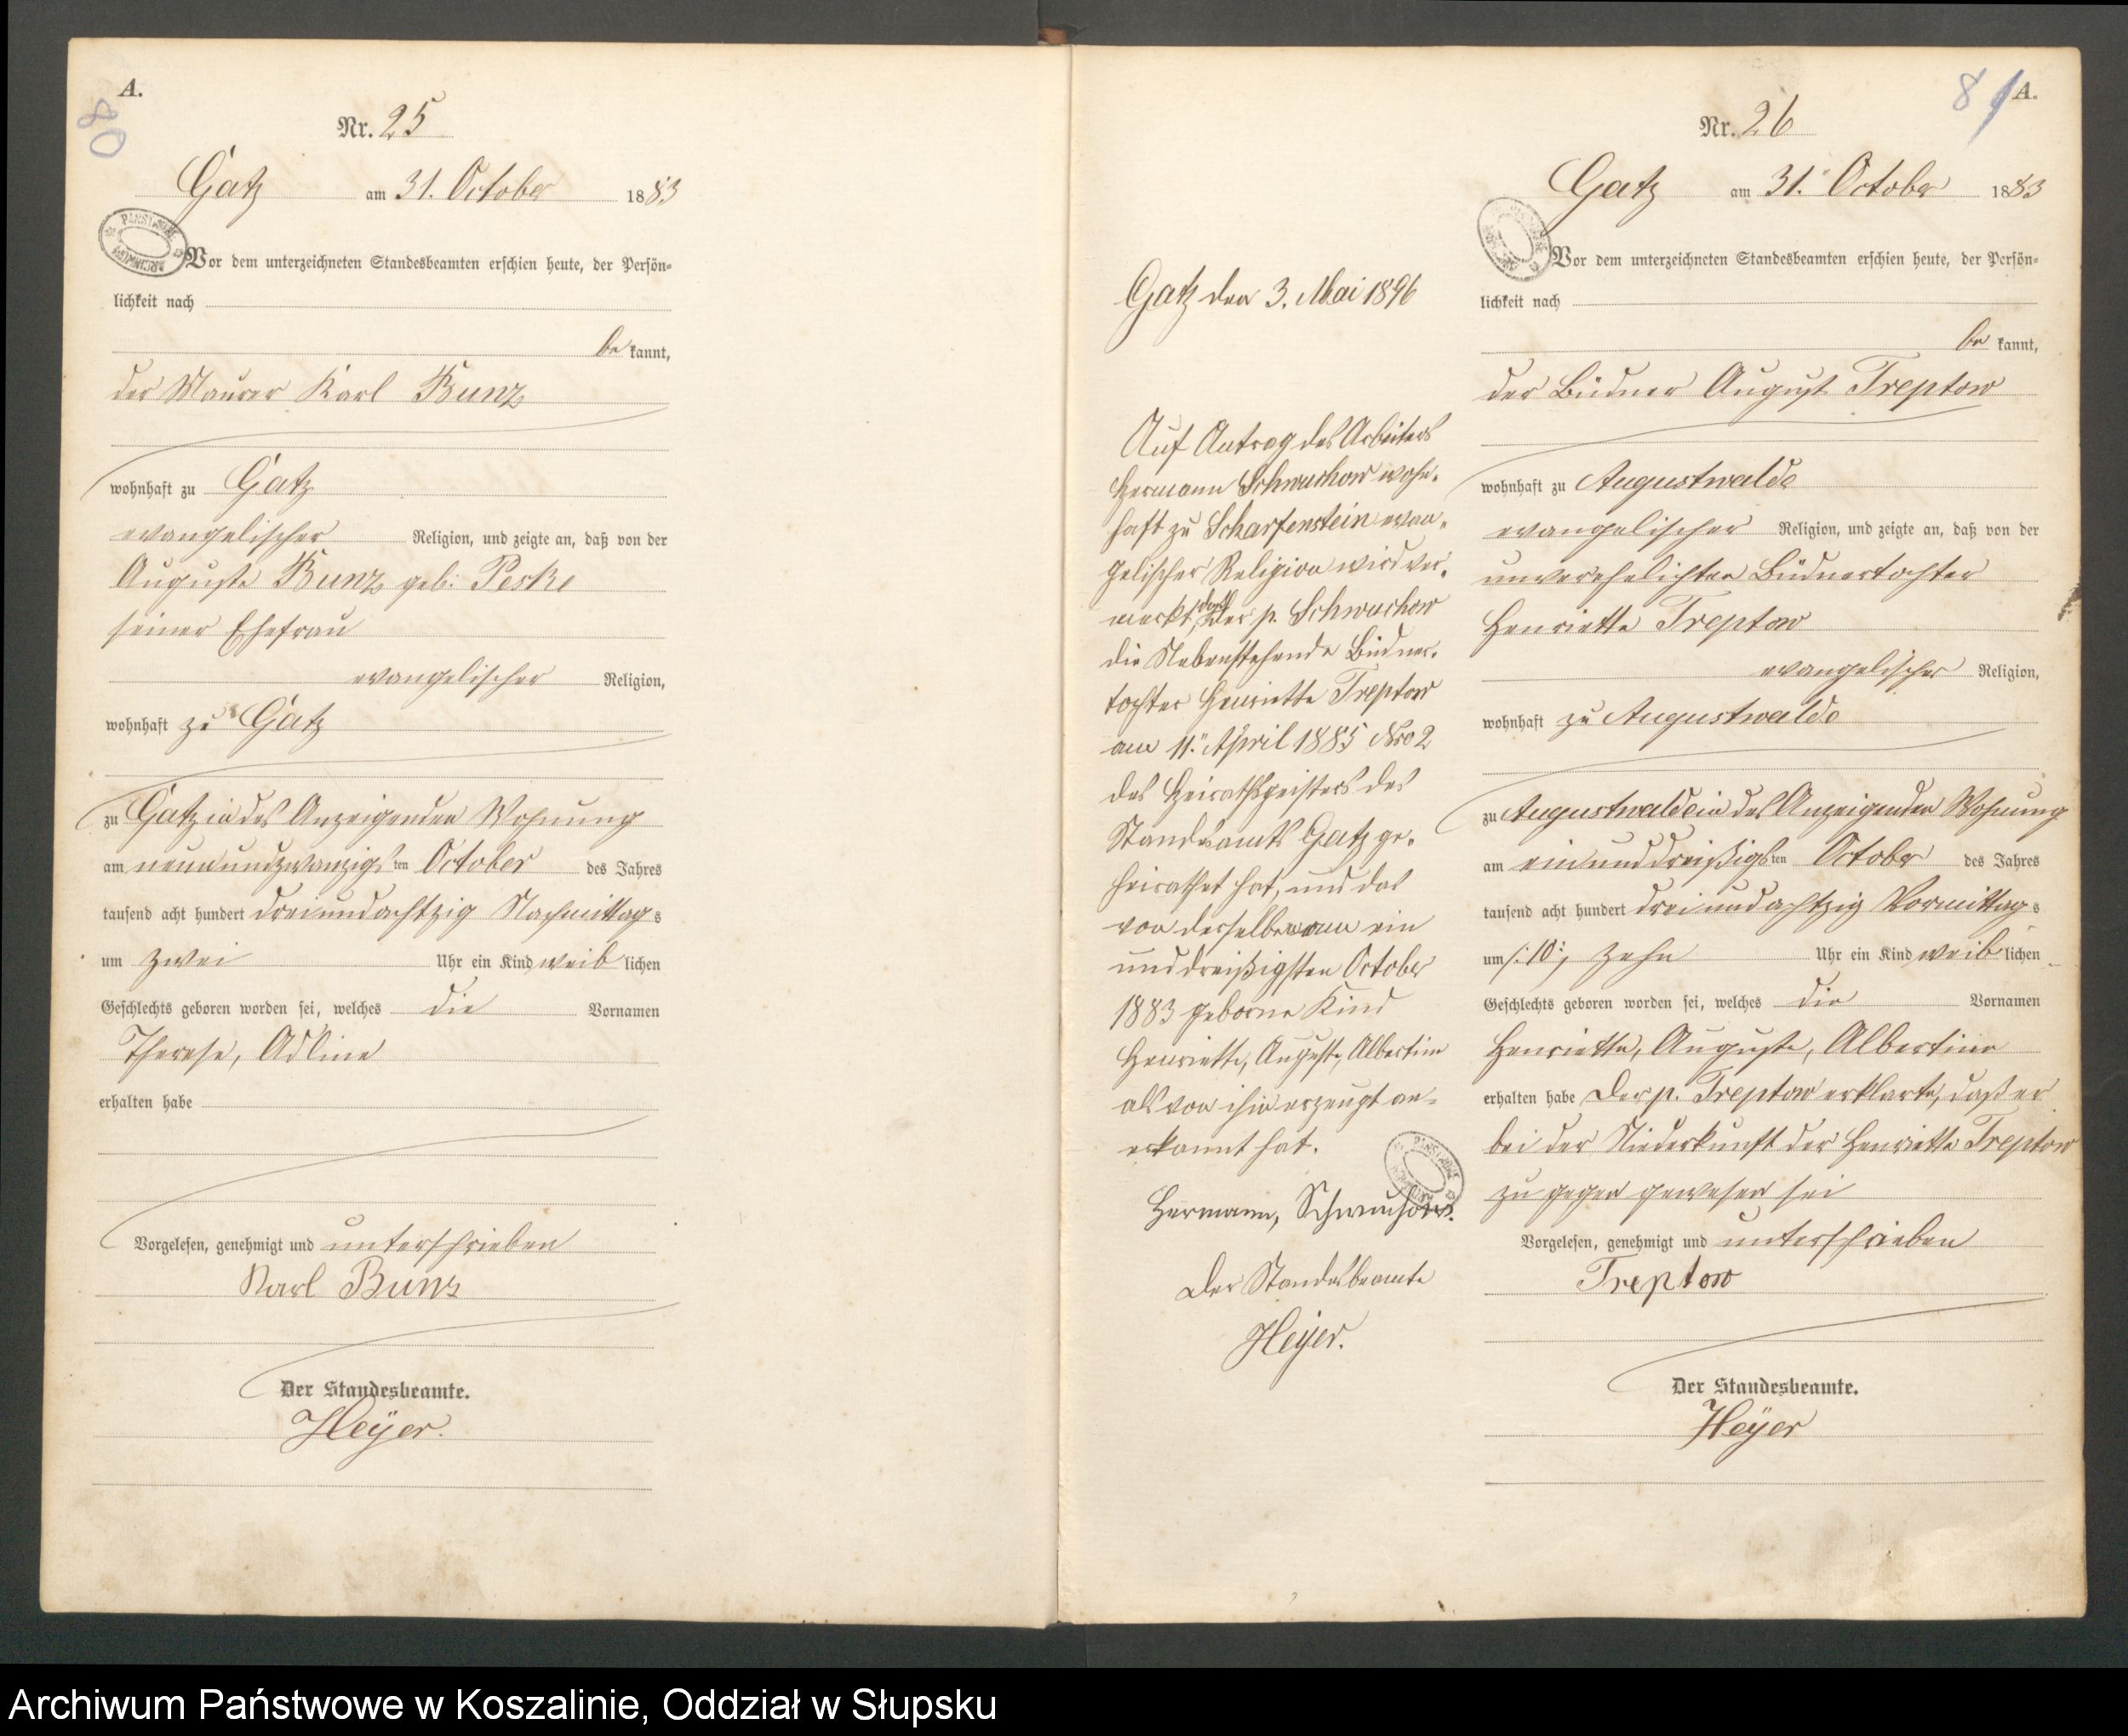 A.
80
Nr. 25
Gatz am 31. October 1883
Vor dem unterzeichneten Standesbeamten erschien heute, der Persön-
lichkeit nach
be kannt,
der Maurer Karl Bunz
wohnhaft zu Gatz
evangelischer Religion, und zeigte an, daß von der
Auguste Bunz geb: Peske
seiner Ehefrau
evangelischer Religion,
wohnhaft zu Gatz
zu Gatz in des Anzeigenden Wohnung
am neunundzwanzigsten October des Jahres
tausend acht hundert dreiundachtzig Nachmittags
um zwei Uhr ein Kind weiblichen
Geschlechts geboren worden sei, welches die Vornamen
Therese, Adline
erhalten habe
Vorgelesen, genehmigt und unterschrieben
Karl Bunz
Der Standesbeamte.
Heÿer.
Gatz den 3. Mai 1896
Auf Antrag des Arbeiters
Hermann Schwuchow wohn-
haft zu Scharfenstein evan-
gelischer Religion wird ver-
merkt, daß der p. Schwuchow
die Nebenstehende Büdner-
tochter Henriette Treptow
am 11. April 1885 Nro 2
des Heirathsregisters des
Standesamts Gatz ge-
heirathet hat, und das
von derselben am ein
und dreißigsten October
1883 geborne Kind
Henriette, Auguste, Albertine
als von ihm erzeugt an-
erkannt hat.
Hermann, Schwuchow.
Der Standesbeamte
Heÿer.
81 A.
Nr. 26
Gatz am 31. October 1883
Vor dem unterzeichneten Standesbeamten erschien heute, der Persön-
lichkeit nach
be kannt,
der Büdner August Treptow
wohnhaft zu Augustwalde
evangelischer Religion, und zeigte an, daß von der
unverehelichten Büdnertochter
Henriette Treptow
evangelischer Religion,
wohnhaft zu Augustwalde
zu Augustwalde in des Anzeigenden Wohnung
am einunddreißigsten October des Jahres
tausend acht hundert dreiundachtzig Vormittags
um /:10:/ zehn Uhr ein Kind weiblichen
Geschlechts geboren worden sei, welches die Vornamen
Henriette, Auguste, Albertine
erhalten habe Der p. Treptow erklarte, daß er
bei der Niederkunft der Henriette Treptow
zu gegen gewesen sei
Vorgelesen, genehmigt und unterschrieben
Treptow
Der Standesbeamte.
Heÿer
Archiwum Państwowe w Koszalinie, Oddział w Słupsku